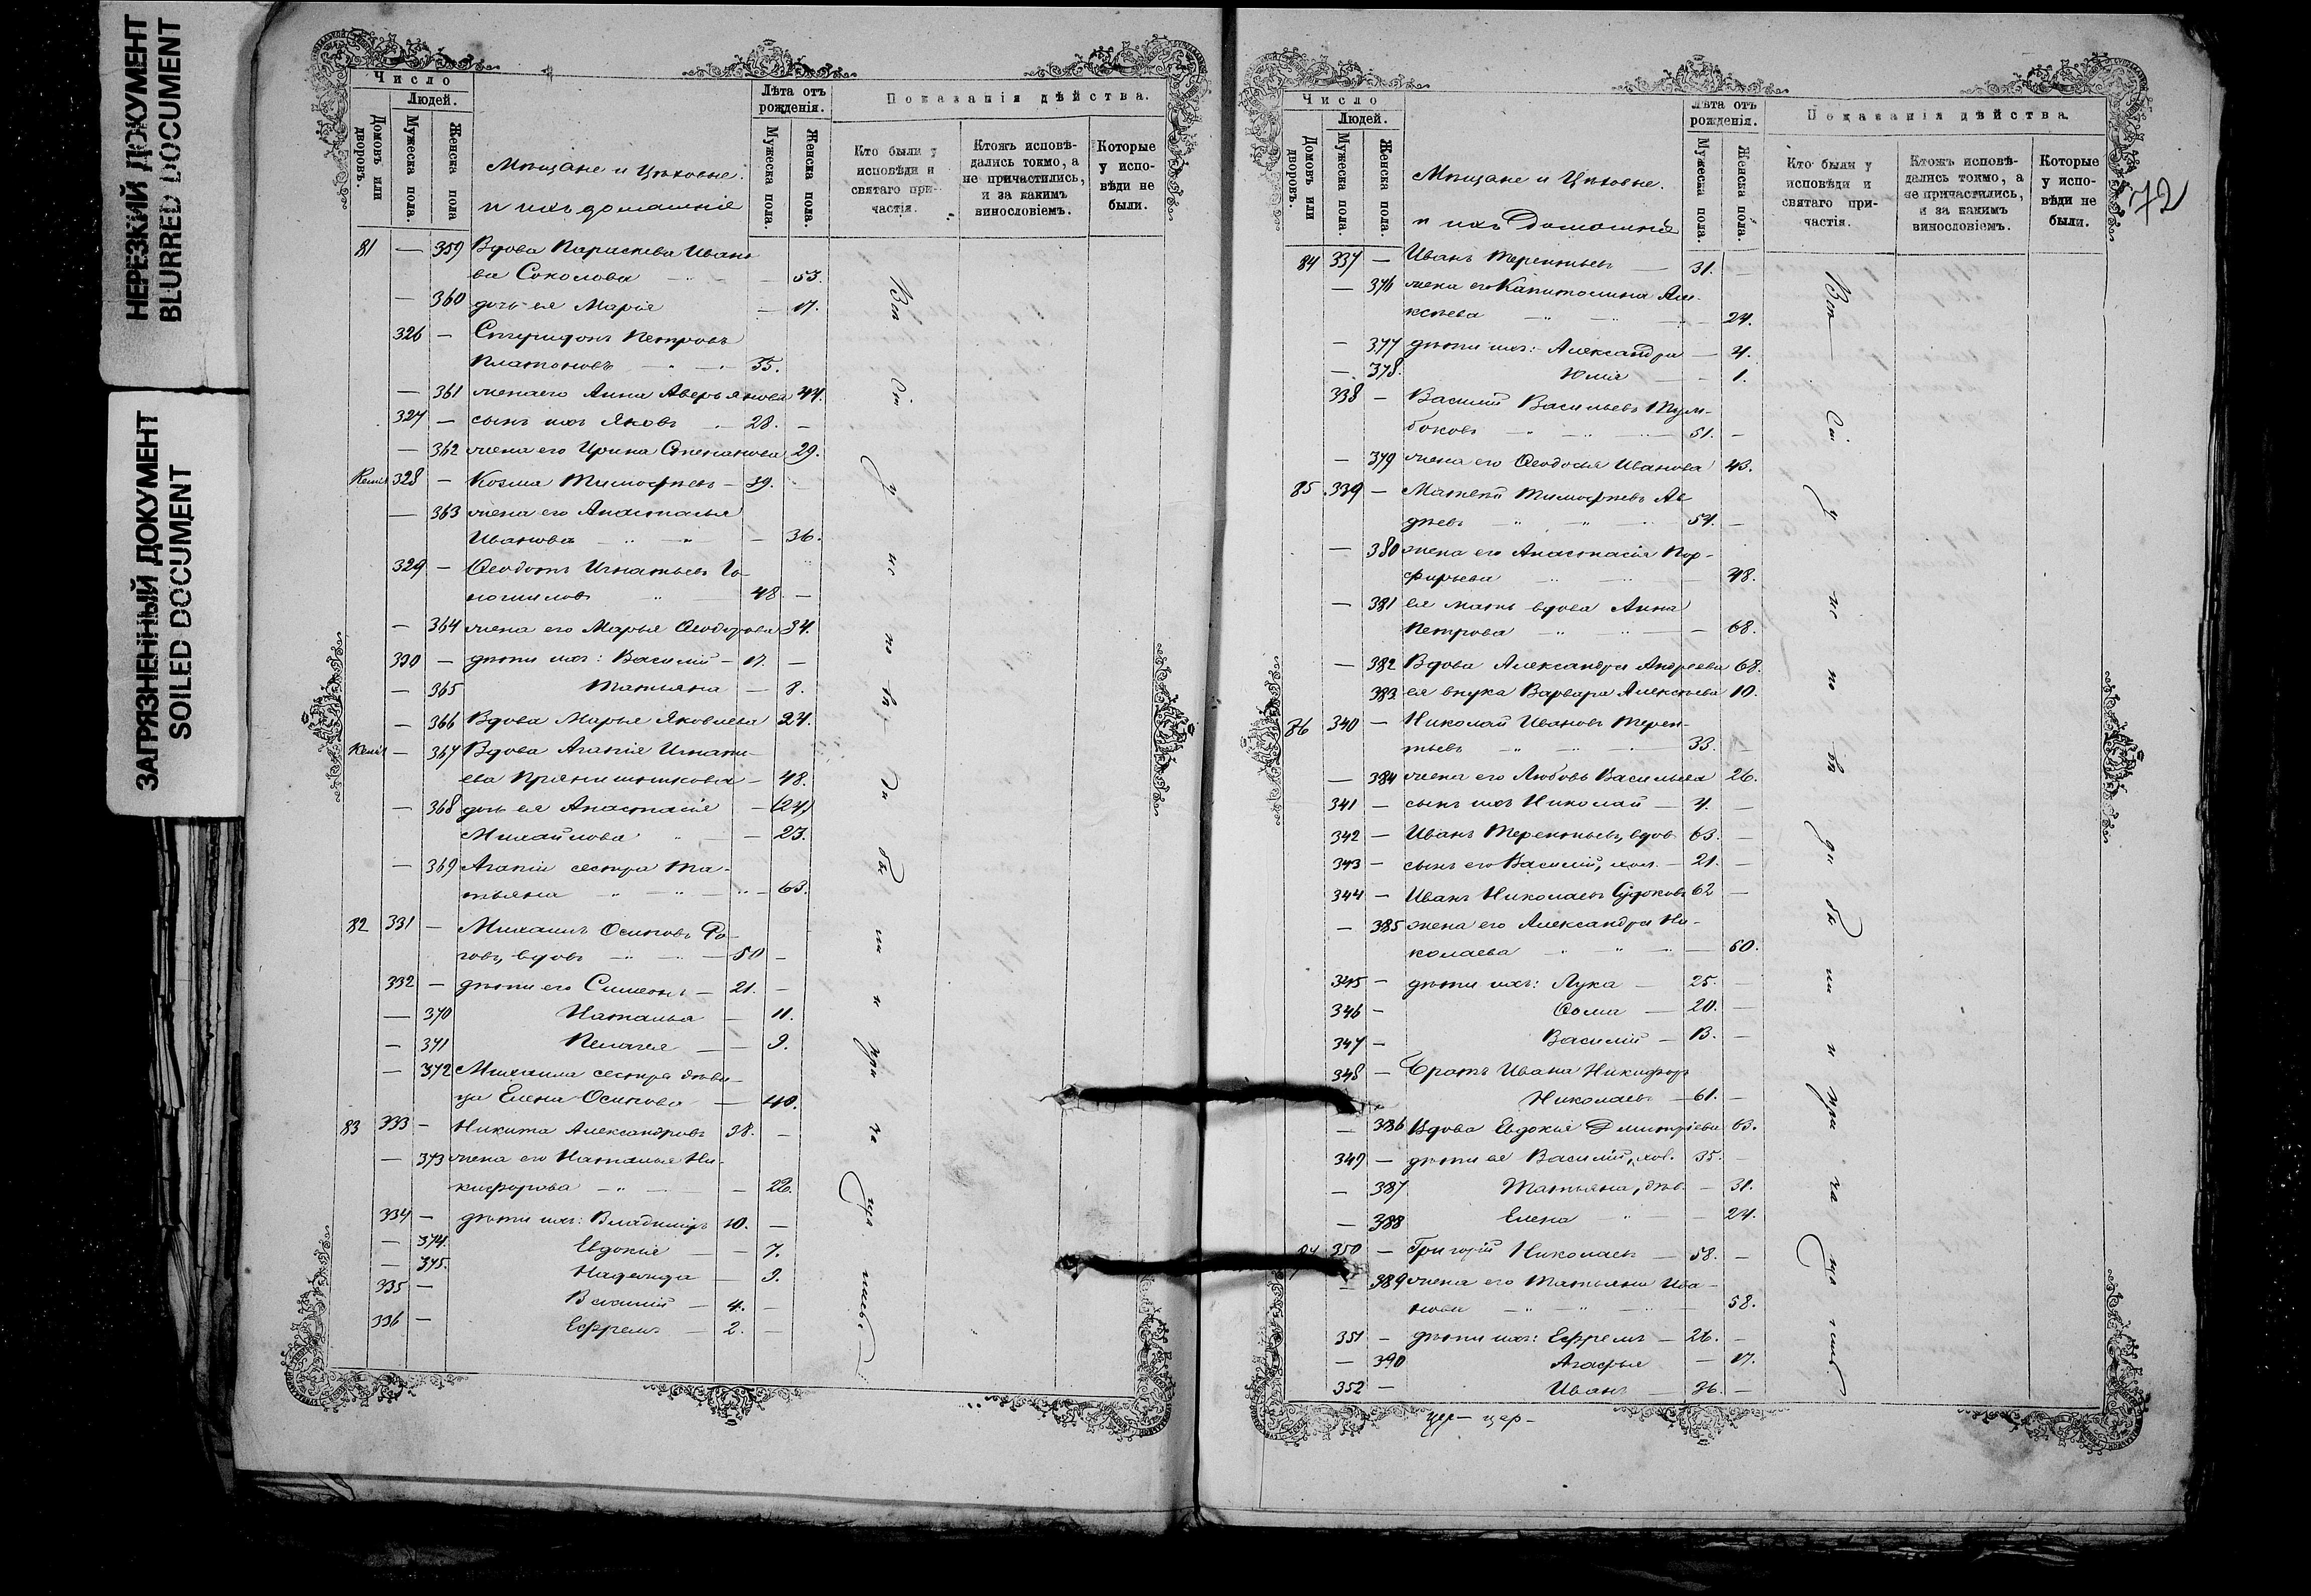 НЕРЕЗКИЙ ДОКУМЕНТ
BLURRED DOCUMENT
ЗАГРЯЗНЕННЫЙ ДОКУМЕНТ
SOILED DOCUMENT
Число
Людей.
Домовъ или дворовъ.
Мужеска пола.
Женска пола
Мѣщане и Цѣховые.
и ихъ домашніе
Лѣта отъ рожденія.
Мужеска пола.
Женска пола.
Показанія дѣйства.
Кто были у исповѣди и святаго причастія.
Ктожъ исповѣдались токмо, а не причастились, и за какимъ винословіемъ.
Которые у исповѣди не были.
81 — 359 Вдова Параскева Ивано
ва Соколова — 53.
— 360 дочь ея Марія — 17.
326 — Спиридонъ Петровъ
Платоновъ 55.
— 361 жена его Анна Аверьянова 44.
327 — сынъ ихъ Яковъ 28. —
— 362 жена его Ирина Степанова 29.
328 — Козма Тимофѣевъ — 39.
— 363 жена его Анастасья
Иванова — 36.
329 — Ѳеодотъ Игнатьевъ
48 —
— 364 жена его Марья Ѳеодорова 34.
330 — дѣти ихъ: Василій — 17. —
— 365 Татьяна — 8.
— 366 Вдова Марья Яковлева 24.
— 367 Вдова Агапія Игнати-
ева Прянишникова — 48.
— 368 дочь ея Анастасія — (24)
Михайлова — 23.
— 369 Агапіи сестра Та-
тьяна — 63.
82 331 — Михаилъ Осиповъ Ро-
говъ, вдовъ — 50 —
332 — дѣти его Симеонъ — 21. —
— 370 Наталья — 11.
— 371 Пелагея — 9.
— 372 Михаила сестра дѣви-
ца Елена Осипова — 40.
83 333 — Никита Александровъ 38. —
— 373 жена его Наталья Ни-
кифорова —
334 — дѣти ихъ: Владиміръ 10. —
— 374. Евдокія — 7.
— 375. Надежда — 9.
335 — Василій — 4. —
336 — Ефремъ — 2. —
Всѣ сіи у исповѣди были и причащались.
72
Число
Людей.
Домовъ или дворовъ.
Мужеска пола.
Женска пола.
Мѣщане и Цѣховые.
и ихъ Домашніе
Лѣта отъ рожденія.
Мужеска пола.
Женска пола.
Показанія дѣйства.
Кто были у исповѣди и святаго причастія.
Ктожъ исповѣдались токмо, а не причастились, и за какимъ винословіемъ.
Которые у исповѣди не были.
84 337 — Иванъ Терентьевъ — 31. —
— 376 жена его Капитолина Але-
ксѣева — 24.
— 377 дѣти ихъ: Александра — 4.
— 378. Юлія — 1.
338 — Василій Васильевъ
51. —
— 379 жена его Ѳеодосья Иванова 43.
85 339 — Матвей Тимофѣевъ Ав
дѣевъ 54. —
— 380 жена его Анастасія Пор-
фирьева — 48.
— 381 ея мать вдова Анна
Петрова — 68.
— 382 Вдова Александра Андреева 68.
383 ея внука Варвара Алексѣева 10.
86 340 — Николай Ивановъ Терен-
тьевъ 33. —
— 384 жена его Любовь Васильева 26.
341 — сынъ ихъ Николай — 4. —
342 — Иванъ Терентьевъ, вдов 63. —
343 — сынъ его Василій, хол. — 21. —
344 — Иванъ Николаевъ 62 —
— 385 жена его Александра Ни-
колаева — 60.
345 — дѣти ихъ: Лука — 25. —
346 — Ѳома — 20. —
347 — Василій — 13. —
348 — Братъ Ивана Никифоръ
Николаевъ — 61. —
— 386 Вдова Евдокія Димитріева 63.
349 — дѣти ея Василій, хол. 35. —
— 387 Татьяна, дѣв. — 31.
— 388 Елена — 24.
350 — Григорій Николаевъ — 58. —
— 389 жена его Татьяна Ива-
нова — 58.
351 — дѣти ихъ: Ефремъ — 26. —
— 390 Агафья — 17.
352 — Иванъ —
Всѣ сіи у исповѣди были и причащались.